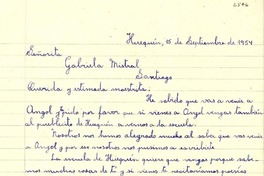 Huequén, 15 de Septiembre de 1954
Señorita
Gabriela Mistral
Santiago
Querida y estimada maestrita:
He sabido que vas a venir a
Angol y pido por favor que si vienes a Angol vengas también
al pueblecito de Huequén a vernos a la escuela.
Nosotros nos hemos alegrado mucho al saber que vas venir
a Angol y por eso nosotros nos pusimos a escribirte
La escuela de Huequén quiere que vengas porque sabe-
mos muchas cosas de ti y si vienes te recitaríamos poesías